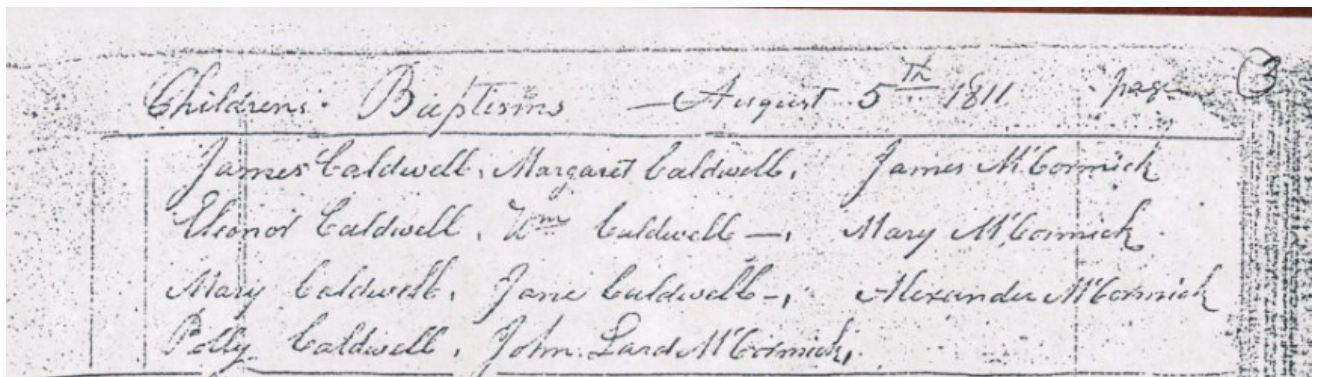 Childrens. Baptisms — August 5th 1811 page 3
James Caldwell, Margaret Caldwell, James McCormick
Eleonor Caldwell, Wm Caldwell —, Mary McCormick
Mary Caldwell, Jane Caldwell —, Alexander McCormick
Polly Caldwell, John Lard McCormick,